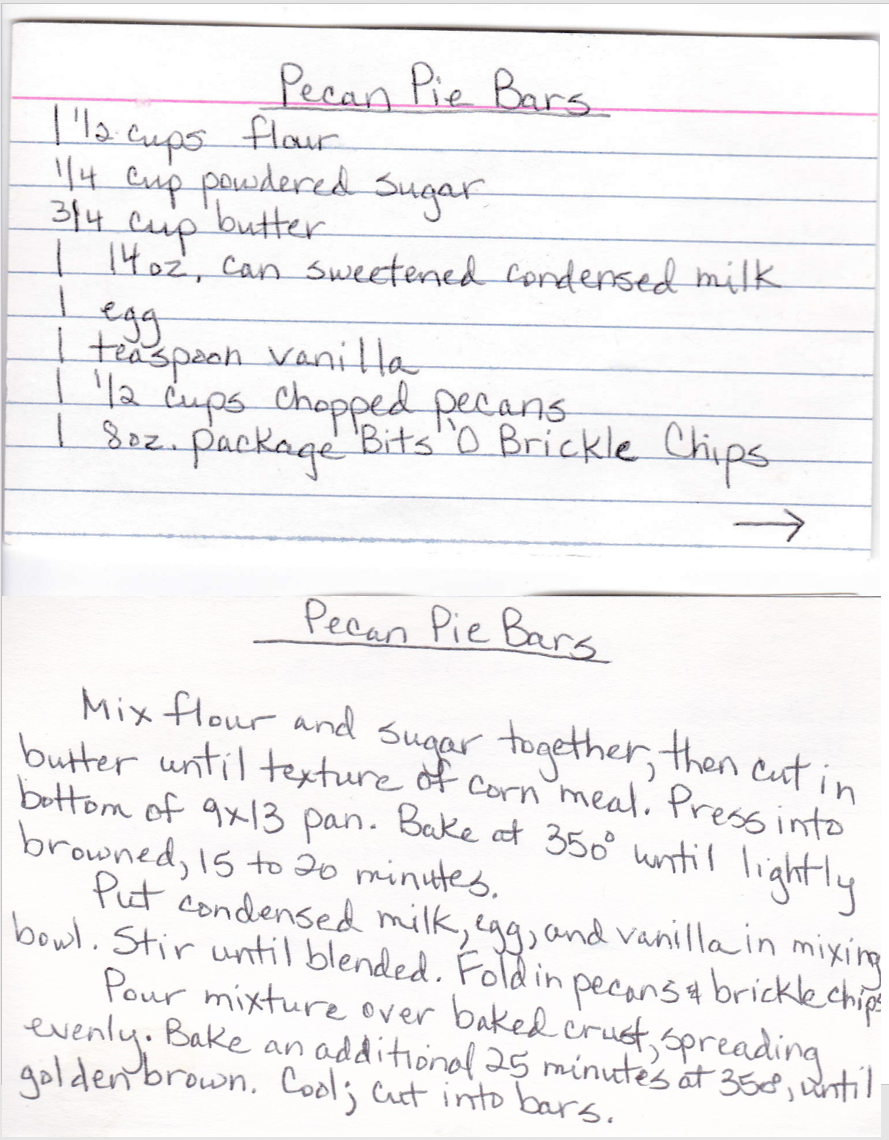 Pecan Pie Bars
1 1/2 cups flour
1/4 cup powdered sugar
3/4 cup butter
1 14 oz. can sweetened condensed milk
1 egg
1 teaspoon vanilla
1 1/2 cups chopped pecans
1 8oz. package Bits 'O Brickle Chips
→
Pecan Pie Bars
Mix flour and sugar together, then cut in
butter until texture of corn meal. Press into
bottom of 9x13 pan. Bake at 350° until lightly
browned, 15 to 20 minutes.
Put condensed milk, egg, and vanilla in mixing
bowl. Stir until blended. Fold in pecans & brickle chips
Pour mixture over baked crust, spreading
evenly. Bake an additional 25 minutes at 350°, until
golden brown. Cool; cut into bars.